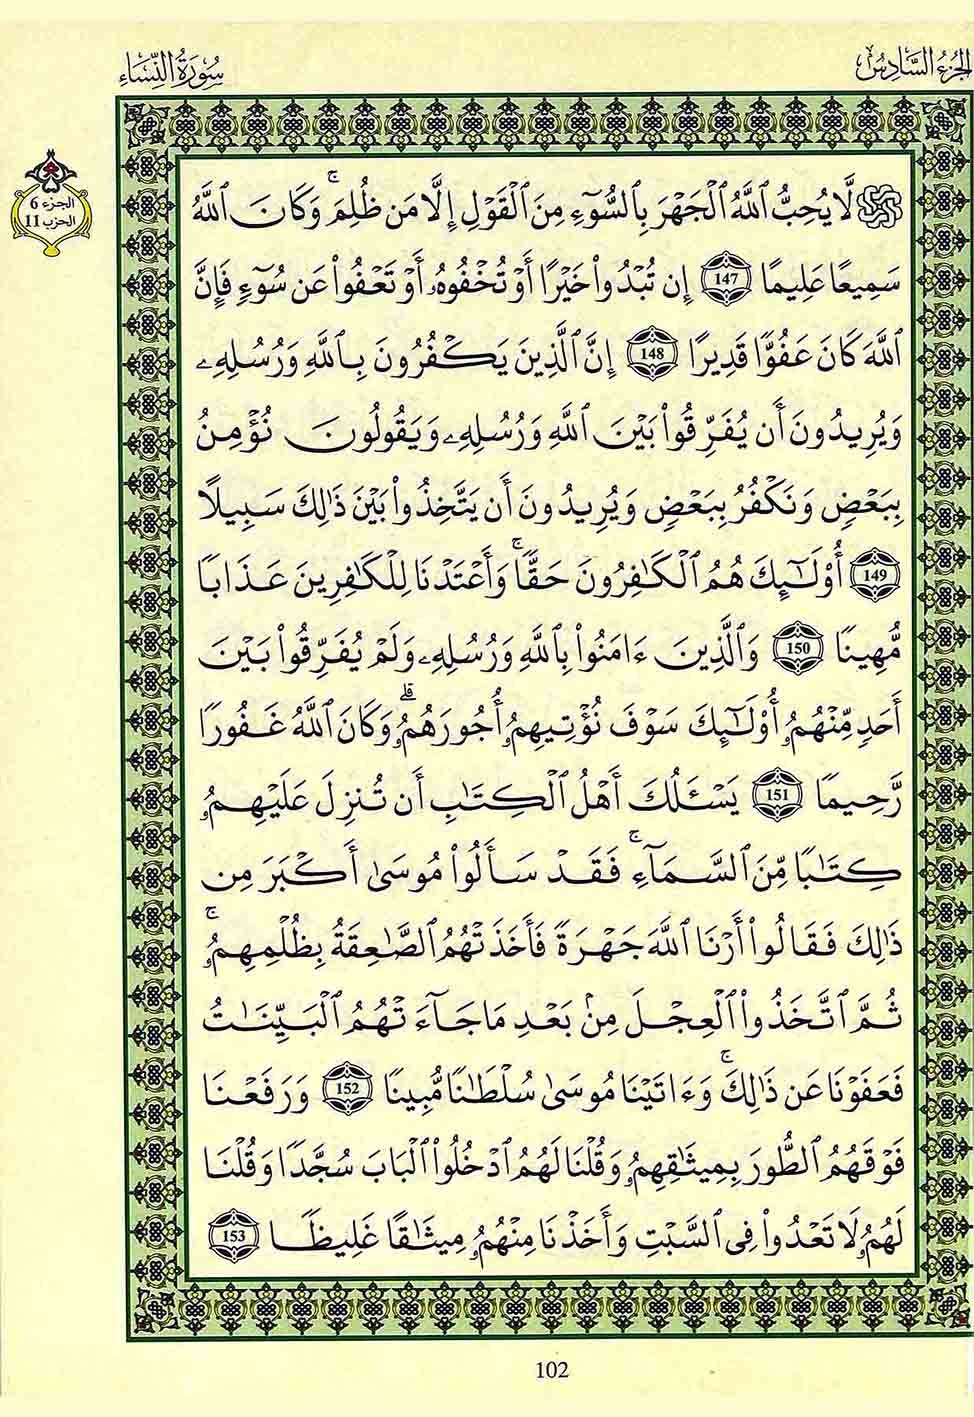 الجزء السادس
سورة النساء
الجزء 6
الحزب 11
لَّا يُحِبُّ اُ۬للَّهُ اُ۬لْجَهْرَ بِالسُّوٓءِ مِنَ اَ۬لْقَوْلِ إِلَّا مَن ظُلِمَۚ وَكَانَ اَ۬للَّهُ
سَمِيعًا عَلِيمًا 147 إِن تُبْدُواْ خَيْرًا أَوْ تُخْفُوهُۥ أَوْ تَعْفُواْ عَن سُوٓءٖ فَإِنَّ
اَ۬للَّهَ كَانَ عَفُوًّا قَدِيرًا 148 إِنَّ اَ۬لَّذِينَ يَكْفُرُونَ بِاللَّهِ وَرُسُلِهِۦ
وَيُرِيدُونَ أَن يُفَرِّقُواْ بَيْنَ اَ۬للَّهِ وَرُسُلِهِۦ وَيَقُولُونَ نُؤْمِنُ
بِبَعْضٖ وَنَكْفُرُ بِبَعْضٖ وَيُرِيدُونَ أَن يَتَّخِذُواْ بَيْنَ ذَٰلِكَ سَبِيلًا
149 أُوْلَٰٓئِكَ هُمُ اُ۬لْكَٰفِرُونَ حَقًّاۚ وَأَعْتَدْنَا لِلْكَٰفِرِينَ عَذَابًا
مُّهِينًا 150 وَالَّذِينَ ءَامَنُواْ بِاللَّهِ وَرُسُلِهِۦ وَلَمْ يُفَرِّقُواْ بَيْنَ
أَحَدٖ مِّنْهُمُۥ أُوْلَٰٓئِكَ سَوْفَ نُؤْتِيهِمُۥ أُجُورَهُمُۥۗ وَكَانَ اَ۬للَّهُ غَفُورًا
رَّحِيمًا 151 يَسْـَٔلُكَ أَهْلُ اُ۬لْكِتَٰبِ أَن تُنزِلَ عَلَيْهِمُۥ
كِتَٰبًا مِّنَ اَ۬لسَّمَآءِۚ فَقَدْ سَأَلُواْ مُوسَىٰ أَكْبَرَ مِن
ذَٰلِكَ فَقَالُواْ أَرْنَا اَ۬للَّهَ جَهْرَةً فَأَخَذَتْهُمُ اُ۬لصَّٰعِقَةُ بِظُلْمِهِمُۥۚ
ثُمَّ اَ۪تَّخَذُواْ اُ۬لْعِجْلَ مِنۢ بَعْدِ مَا جَآءَتْهُمُ اُ۬لْبَيِّنَٰتُ
فَعَفَوْنَا عَن ذَٰلِكَۚ وَءَاتَيْنَا مُوسَىٰ سُلْطَٰنًا مُّبِينًا 152 وَرَفَعْنَا
فَوْقَهُمُ اُ۬لطُّورَ بِمِيثَٰقِهِمُۥ وَقُلْنَا لَهُمُ اُ۟دْخُلُواْ اُ۬لْبَابَ سُجَّدًا وَقُلْنَا
لَهُمُۥ لَا تَعْدُواْ فِي اِ۬لسَّبْتِ وَأَخَذْنَا مِنْهُمُۥ مِيثَٰقًا غَلِيظًا 153
102